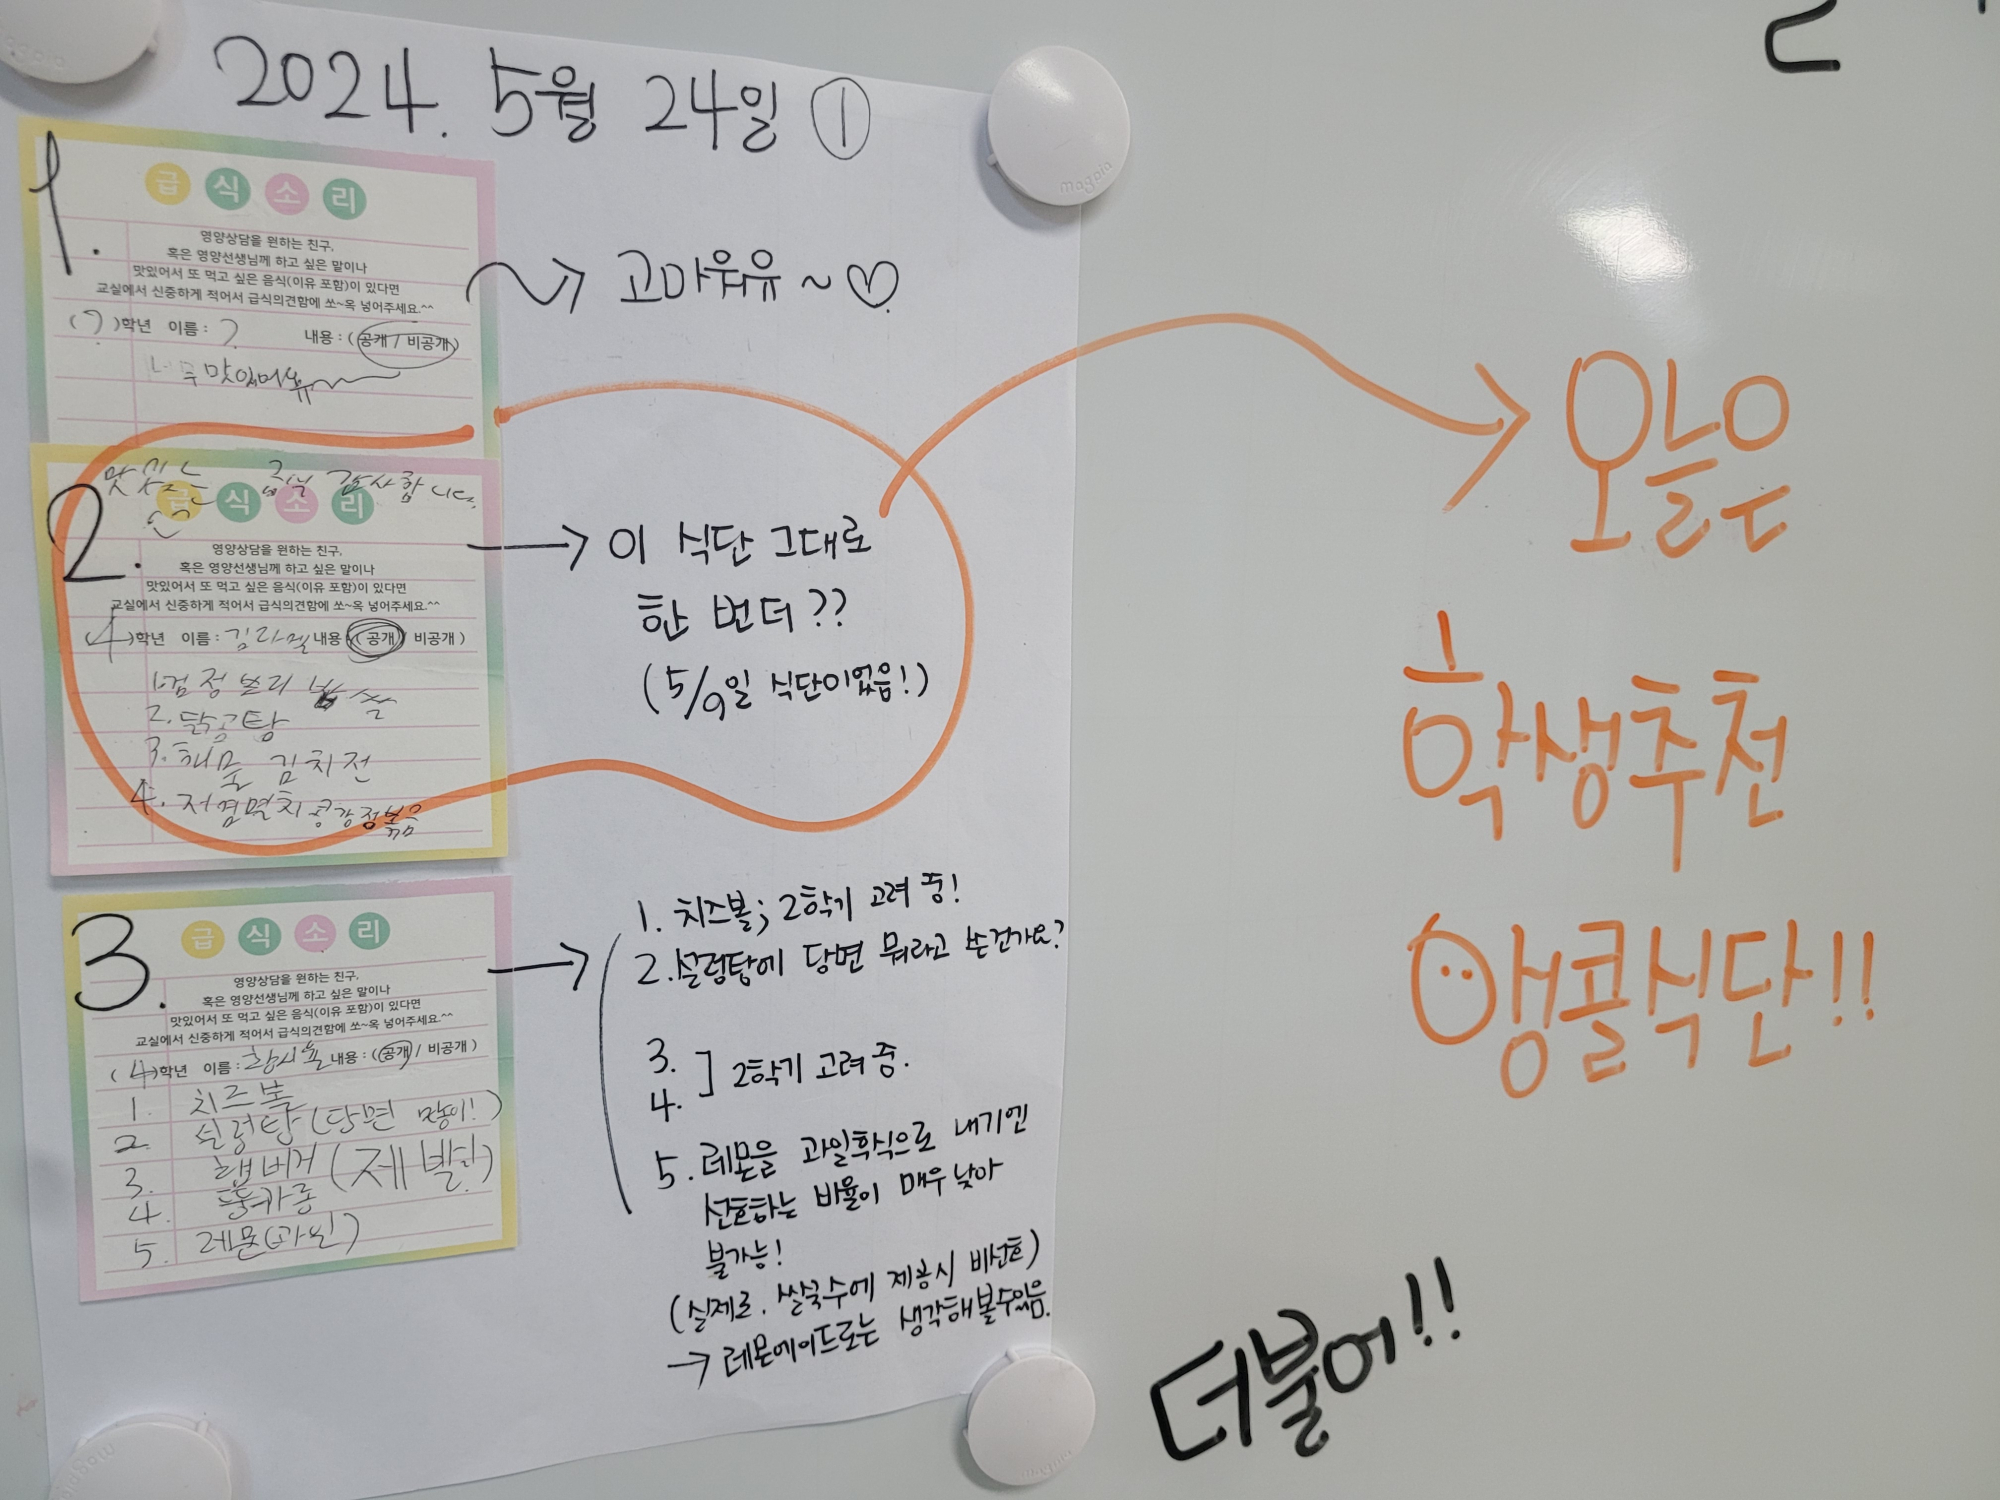 2024. 5월 24일 ①
1.
급식소리
영양상담을 원하는 친구,
혹은 영양선생님께 하고 싶은 말이나
맛있어서 또 먹고 싶은 음식(이유 포함)이 있다면
교실에서 신중하게 적어서 급식의견함에 쏘~옥 넣어주세요.^^
(?)학년 이름 : ? 내용 : (공개 / 비공개)
너무 맛있어유
고마워유~♡
2.
맛있는 급식 감사합니다.
급식소리
영양상담을 원하는 친구,
혹은 영양선생님께 하고 싶은 말이나
맛있어서 또 먹고 싶은 음식(이유 포함)이 있다면
교실에서 신중하게 적어서 급식의견함에 쏘~옥 넣어주세요.^^
(4)학년 이름 : 김라 내용 : (공개 / 비공개)
1. 검정보리쌀
2. 닭곰탕
3. 해물 김치전
4. 저염멸치콩강정볶음
→ 이 식단 그대로
한 번 더??
(5/9일 식단이없음!)
3.
급식소리
영양상담을 원하는 친구,
혹은 영양선생님께 하고 싶은 말이나
맛있어서 또 먹고 싶은 음식(이유 포함)이 있다면
교실에서 신중하게 적어서 급식의견함에 쏘~옥 넣어주세요.^^
(4)학년 이름 : 내용 : (공개 / 비공개)
1. 치즈볼
2. 설렁탕(당면 많이!)
3. 햄버거(제발!)
4. 뚱카롱
5. 레몬(과일)
→ 1. 치즈볼; 2학기 고려 중!
2. 설렁탕에 당면 뭐라고 쓴건가요?
3.
4. ] 2학기 고려 중.
5. 레몬을 과일후식으로 내기엔
선호하는 비율이 매우 낮아
불가능!
(실제로, 쌀국수에 제공시 비선호)
→ 레몬에이드로는 생각해볼수있음.
오늘은
학생추천
앵콜식단!!
더불어!!
magpia
magpia
magpia